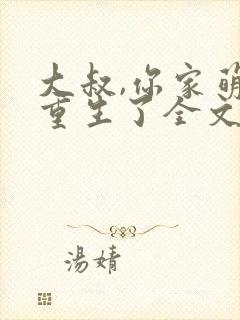 大叔,你家萌
重生了全文
湯婧